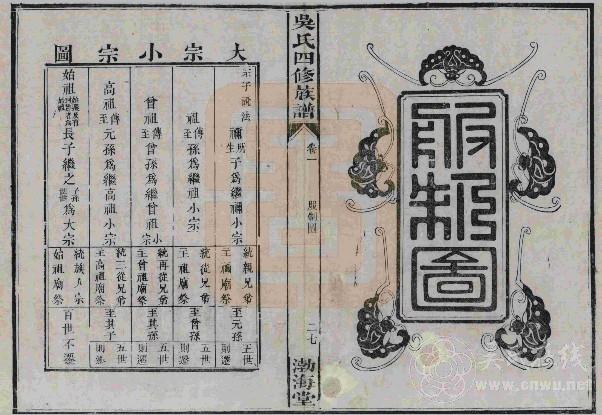 服制圖
吳氏四修族譜
卷一
服制圖
二七
渤海堂
大宗小宗圖
宗子說法
禰所生子為繼禰小宗
統親兄弟至禰廟祭
至元孫
五世則遷
祖傳至孫為繼祖小宗
統從兄弟至祖廟祭
至曾孫
五世則遷
曾祖傳至曾孫為繼曾祖小宗
統再從兄弟至曾祖廟祭
至其孫
五世則遷
高祖傳至元孫為繼高祖小宗
統三從兄弟至高祖廟祭
至其子
五世則遷
始祖長子繼之為大宗
統族人宗始祖廟祭
百世不遷
www.cnwu.net